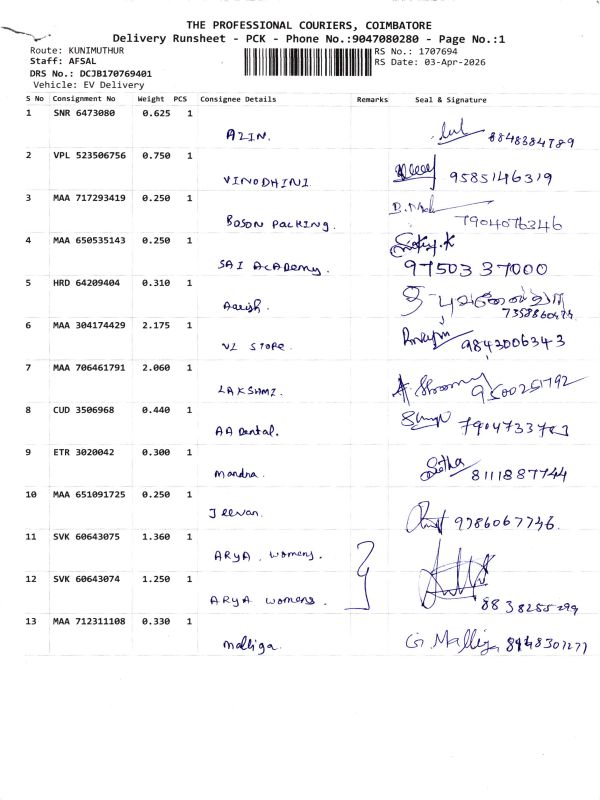 THE PROFESSIONAL COURIERS, COIMBATORE
Delivery Runsheet - PCK - Phone No.:9047080280 - Page No.:1
Route: KUNIMUTHUR RS No.: 1707694
Staff: AFSAL RS Date: 03-Apr-2026
DRS No.: DCJB170769401
Vehicle: EV Delivery
S No Consignment No Weight PCS Consignee Details Remarks Seal & Signature
1 SNR 6473080 0.625 1
AZIN. 8848384789
2 VPL 523506756 0.750 1
VINODHINI. 9585146319
3 MAA 717293419 0.250 1
BOSON PACKING. 7904076346
4 MAA 650535143 0.250 1
SAI ACADEMY. 97503 37000
5 HRD 64209404 0.310 1
Aarish.
6 MAA 304174429 2.175 1
VL STORE. 9843006343
7 MAA 706461791 2.060 1
LAKSHMI. 9500251792
8 CUD 3506968 0.440 1
AA Dental.
9 ETR 3020042 0.300 1
Mandra. 8111887744
10 MAA 651091725 0.250 1
Jeevan. 9786067746.
11 SVK 60643075 1.360 1
ARYA. womens.
12 SVK 60643074 1.250 1
ARYA womens. 8838255299
13 MAA 712311108 0.330 1
Malliga. G. Malliga